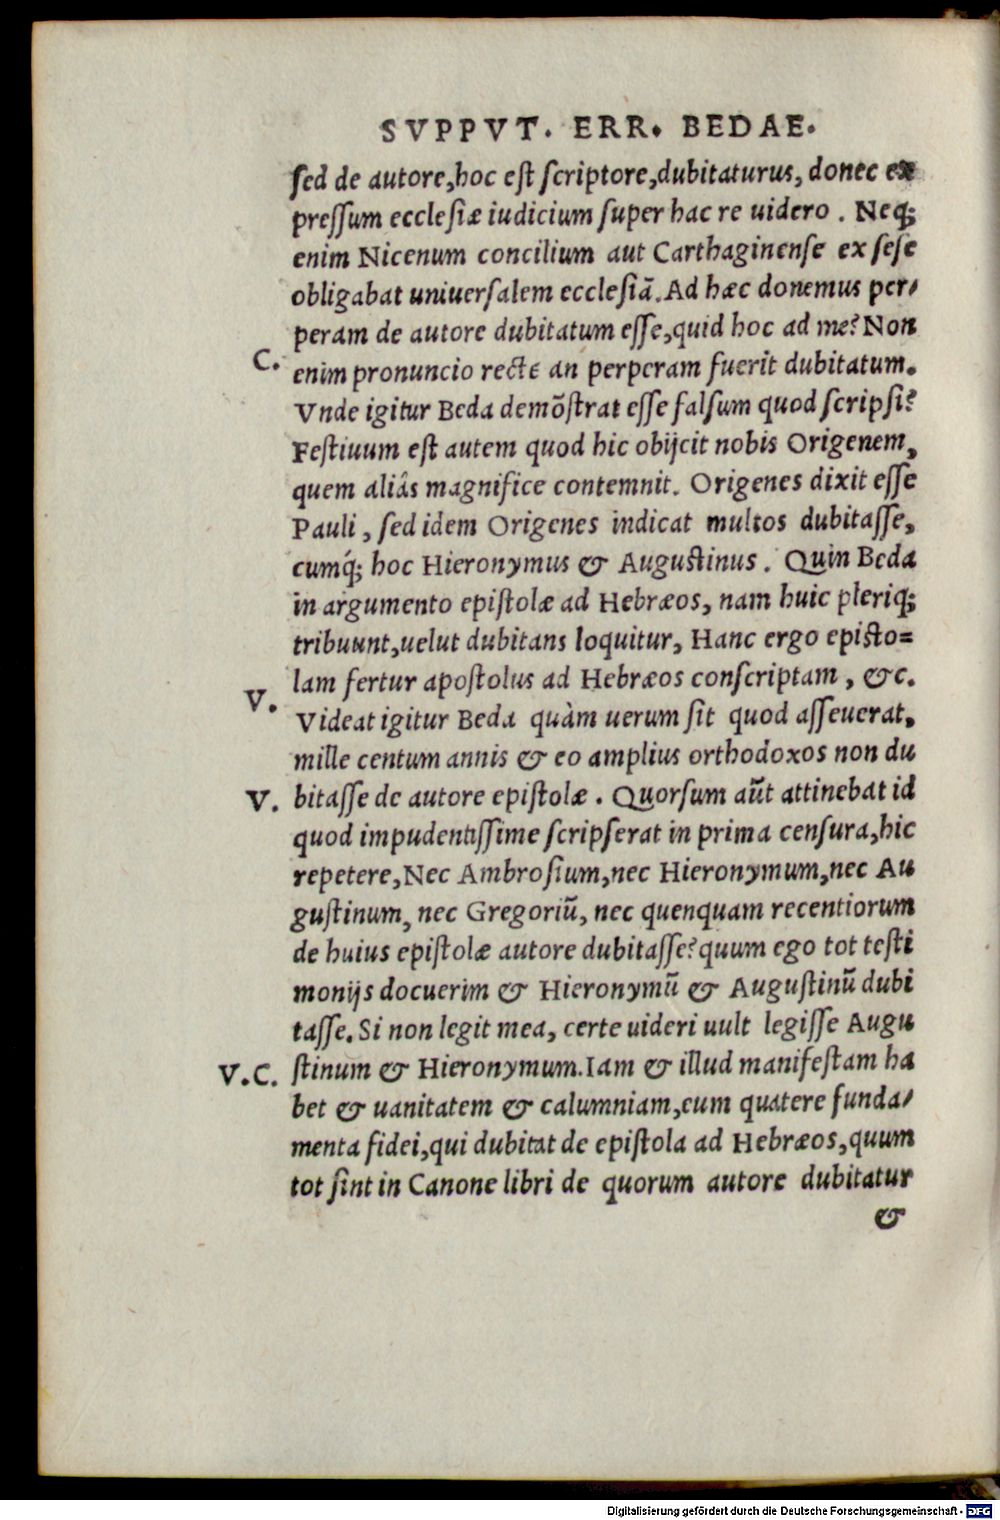 SVPPVT. ERR. BEDAE.
sed de autore,hoc est scriptore,dubitaturus, donec ex
pressum ecclesiæ iudicium super hac re uidero . Neq;
enim Nicenum concilium aut Carthaginense ex sese
obligabat uniuersalem ecclesiã. Ad hæc donemus per/
peram de autore dubitatum esse,quid hoc ad me? Non
C. enim pronuncio recte an perperam fuerit dubitatum.
Vnde igitur Beda demõstrat esse falsum quod scripsi?
Festiuum est autem quod hic obijcit nobis Origenem,
quem aliâs magnifice contemnit. Origenes dixit esse
Pauli , sed idem Origenes indicat multos dubitasse,
cumq́; hoc Hieronymus & Augustinus . Quin Beda
in argumento epistolæ ad Hebræos, nam huic pleriq;
tribuunt,uelut dubitans loquitur, Hanc ergo episto=
lam fertur apostolus ad Hebræos conscriptam , &c.
V. Videat igitur Beda quàm uerum sit quod asseuerat,
mille centum annis & eo amplius orthodoxos non du
V. bitasse de autore epistolæ . Quorsum aũt attinebat id
quod impudentissime scripserat in prima censura,hic
repetere,Nec Ambrosium,nec Hieronymum,nec Au
gustinum, nec Gregoriũ, nec quenquam recentiorum
de huius epistolæ autore dubitasse? quum ego tot testi
monijs docuerim & Hieronymũ & Augustinũ dubi
tasse. Si non legit mea, certe uideri uult legisse Augu
V.C. stinum & Hieronymum. Iam & illud manifestam ha
bet & uanitatem & calumniam,eum quatere funda/
menta fidei,qui dubitat de epistola ad Hebræos,quum
tot sint in Canone libri de quorum autore dubitatur
&
Digitalisierung gefördert durch die Deutsche Forschungsgemeinschaft - DFG